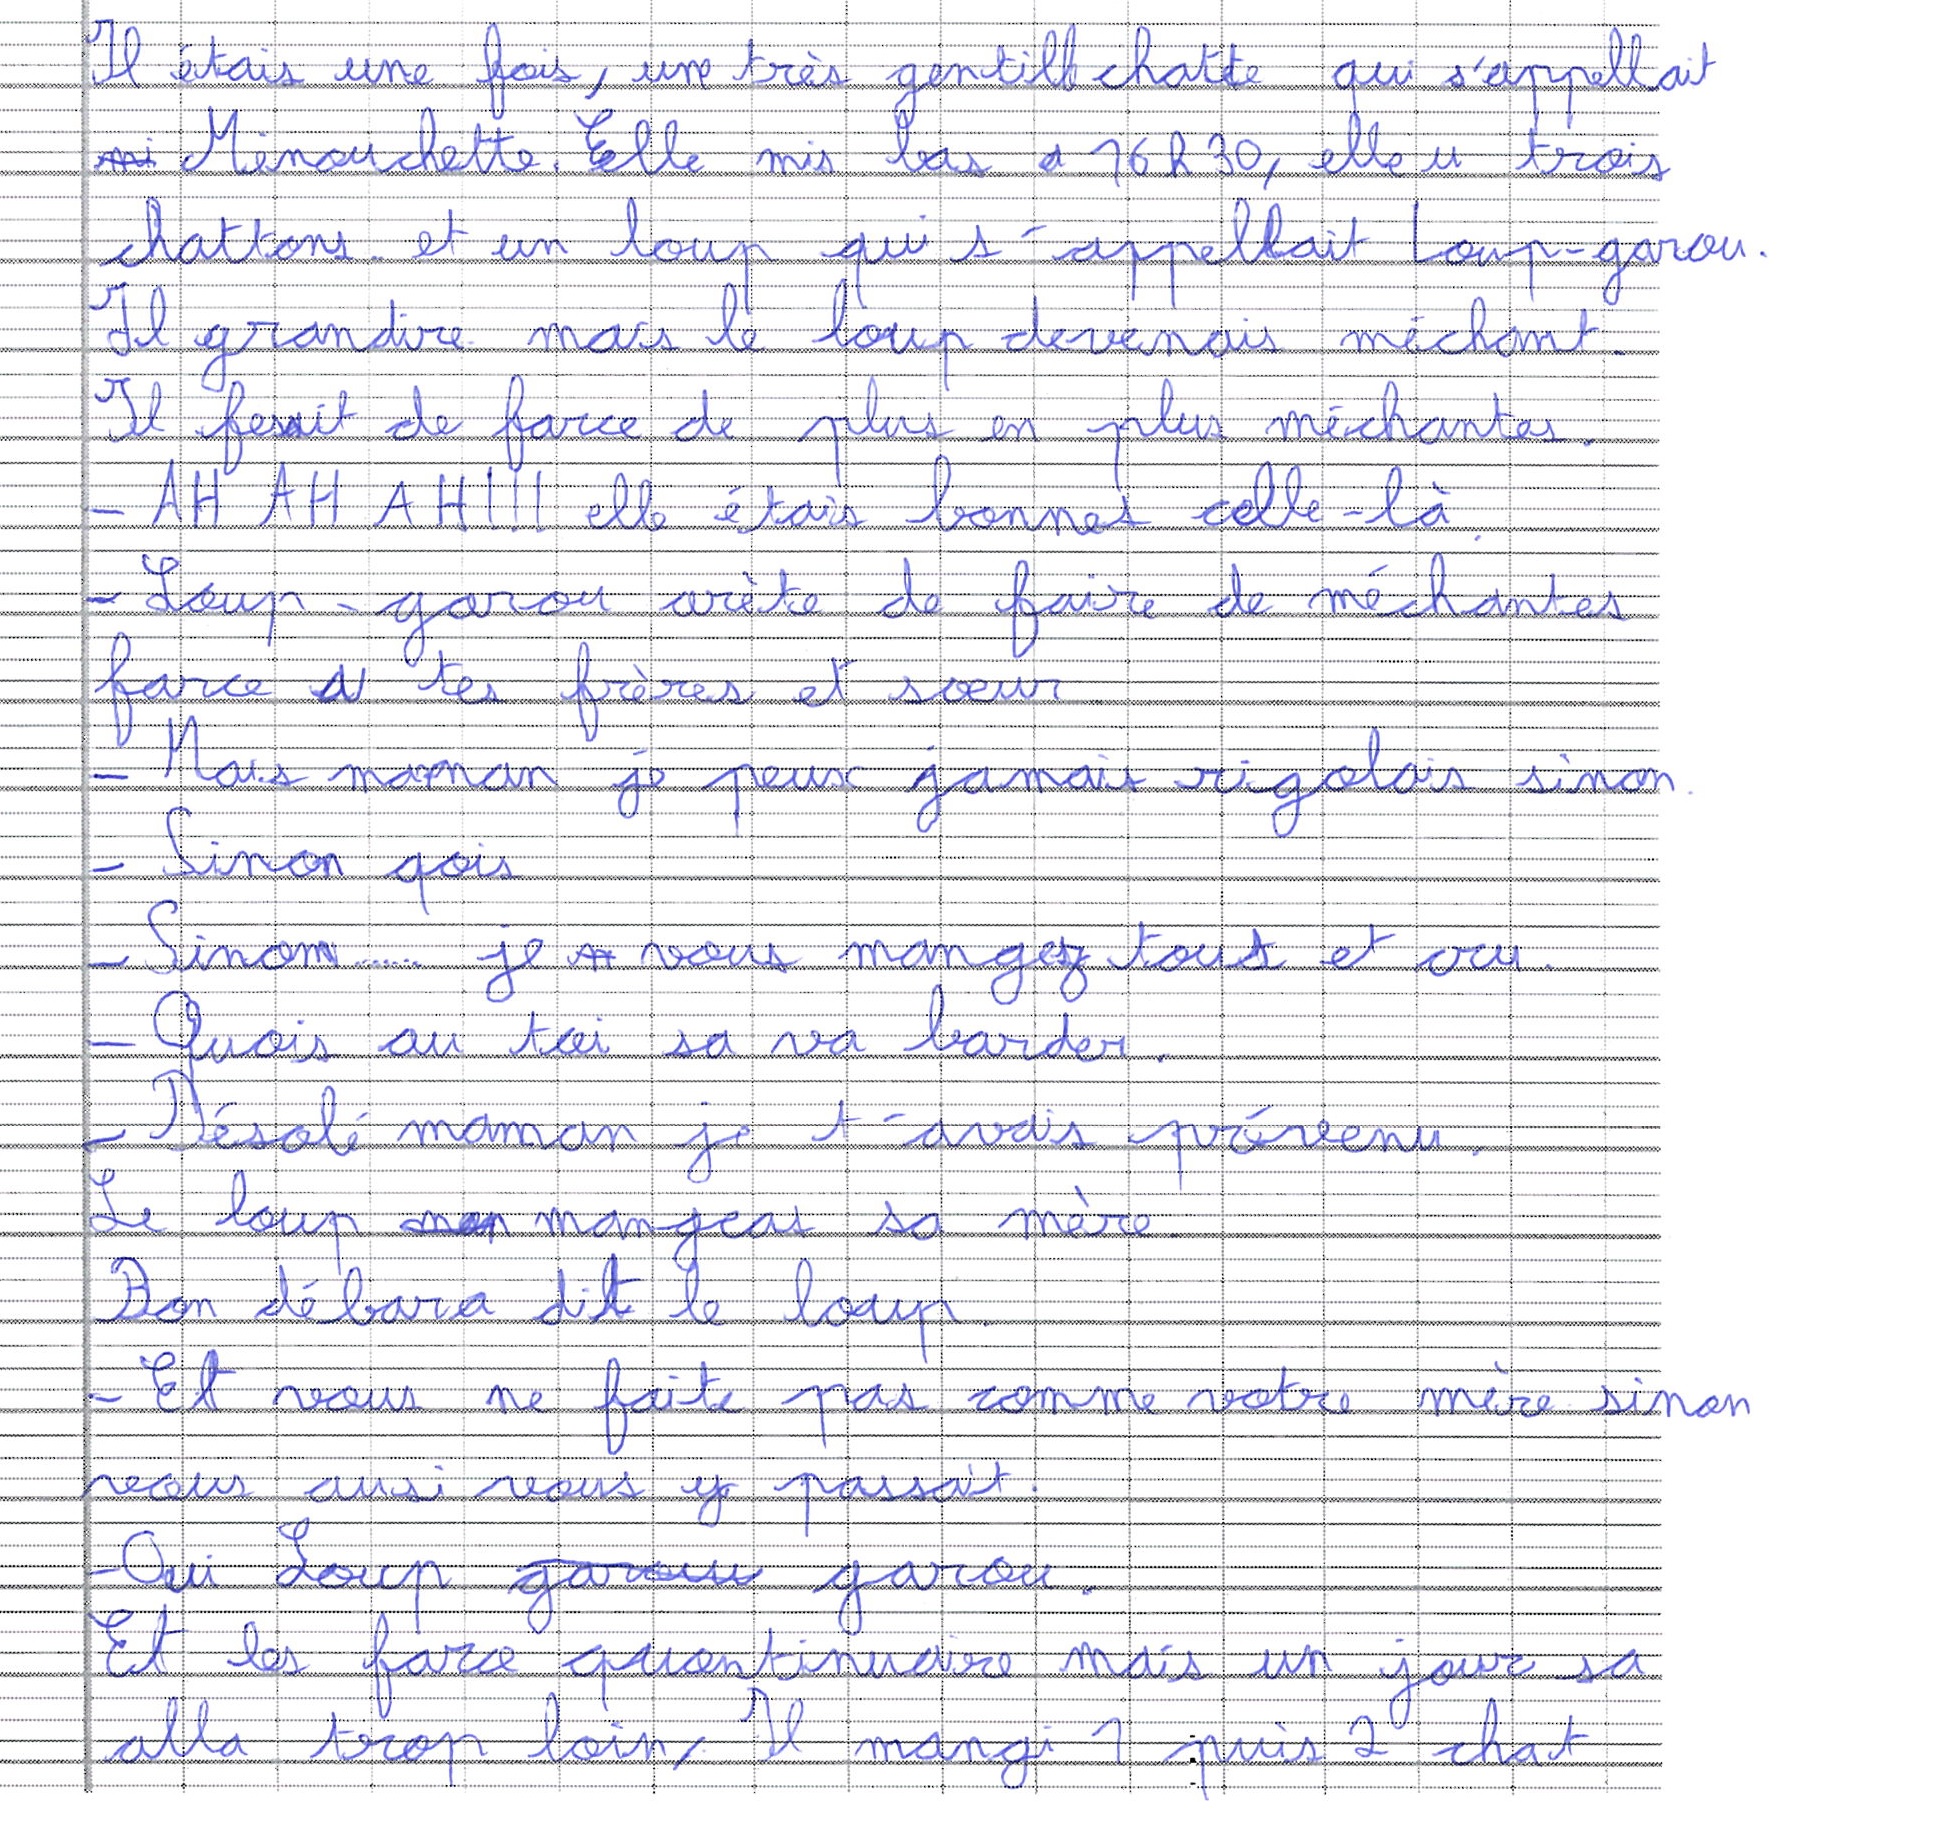 Il étais une fois, une très gentill chatte qui s'appellait
mi Minouchette. Elle mis bas a 16 h 30, elle u trois
chattons et un loup qui s'appellait Loup-garou.
Il grandire mais le loup devenais méchant.
Il fesait de farce de plus en plus méchantes.
- AH AH AH!!! elle étais bonnes celle-là.
- Loup-garou arète de faire de méchantes
farce a tes frères et soeur
- Mais maman je peux jamais rigolais sinon.
- Sinon qois
- Sinom...... je vous mangez tout et cru.
- Quois au toi sa va barder.
- Désolé maman je t'avais prévenu.
Le loup man mangeas sa mère.
Bon débara dit le loup.
- Et vous ne faite pas comme votre mère sinon
vous ausi vous y passait.
- Oui Loup garou garou.
Et les farce quontinuaire mais un jour sa
alla trop loin, Il mangi 1 puis 2 chat